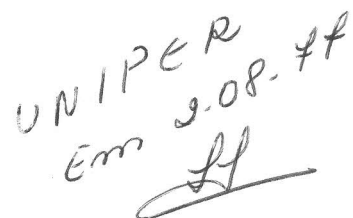 UNIPER
Em 2.08.77